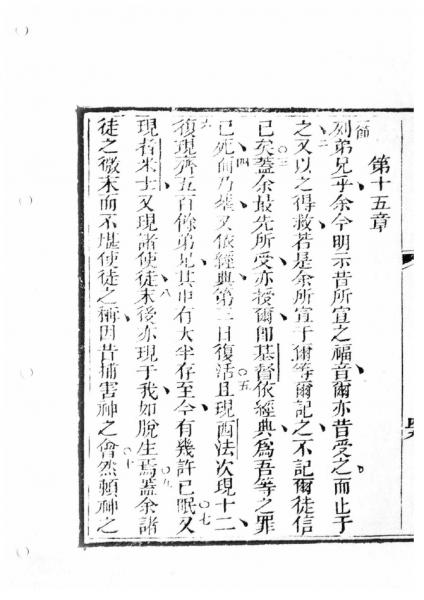 第十五章
節
列弟兄乎余今明示昔所宣之福音爾亦昔受之而止于
二
之又以之得救若是余所宣于爾等爾記之不記爾徒信
三
已矣蓋余最先所受亦授爾卽基督依經典爲吾等之罪
四 五
已死而乃葬又依經典第三日復活且現西法次現十二
六 七
復現齊五百餘弟兄其中有大半存至今有幾許已眠又
八
現者米士又現諸使徒末後亦現于我如脫生焉蓋余諸
九 十
徒之微末而不堪使徒之稱因昔捕害神之會然賴神之